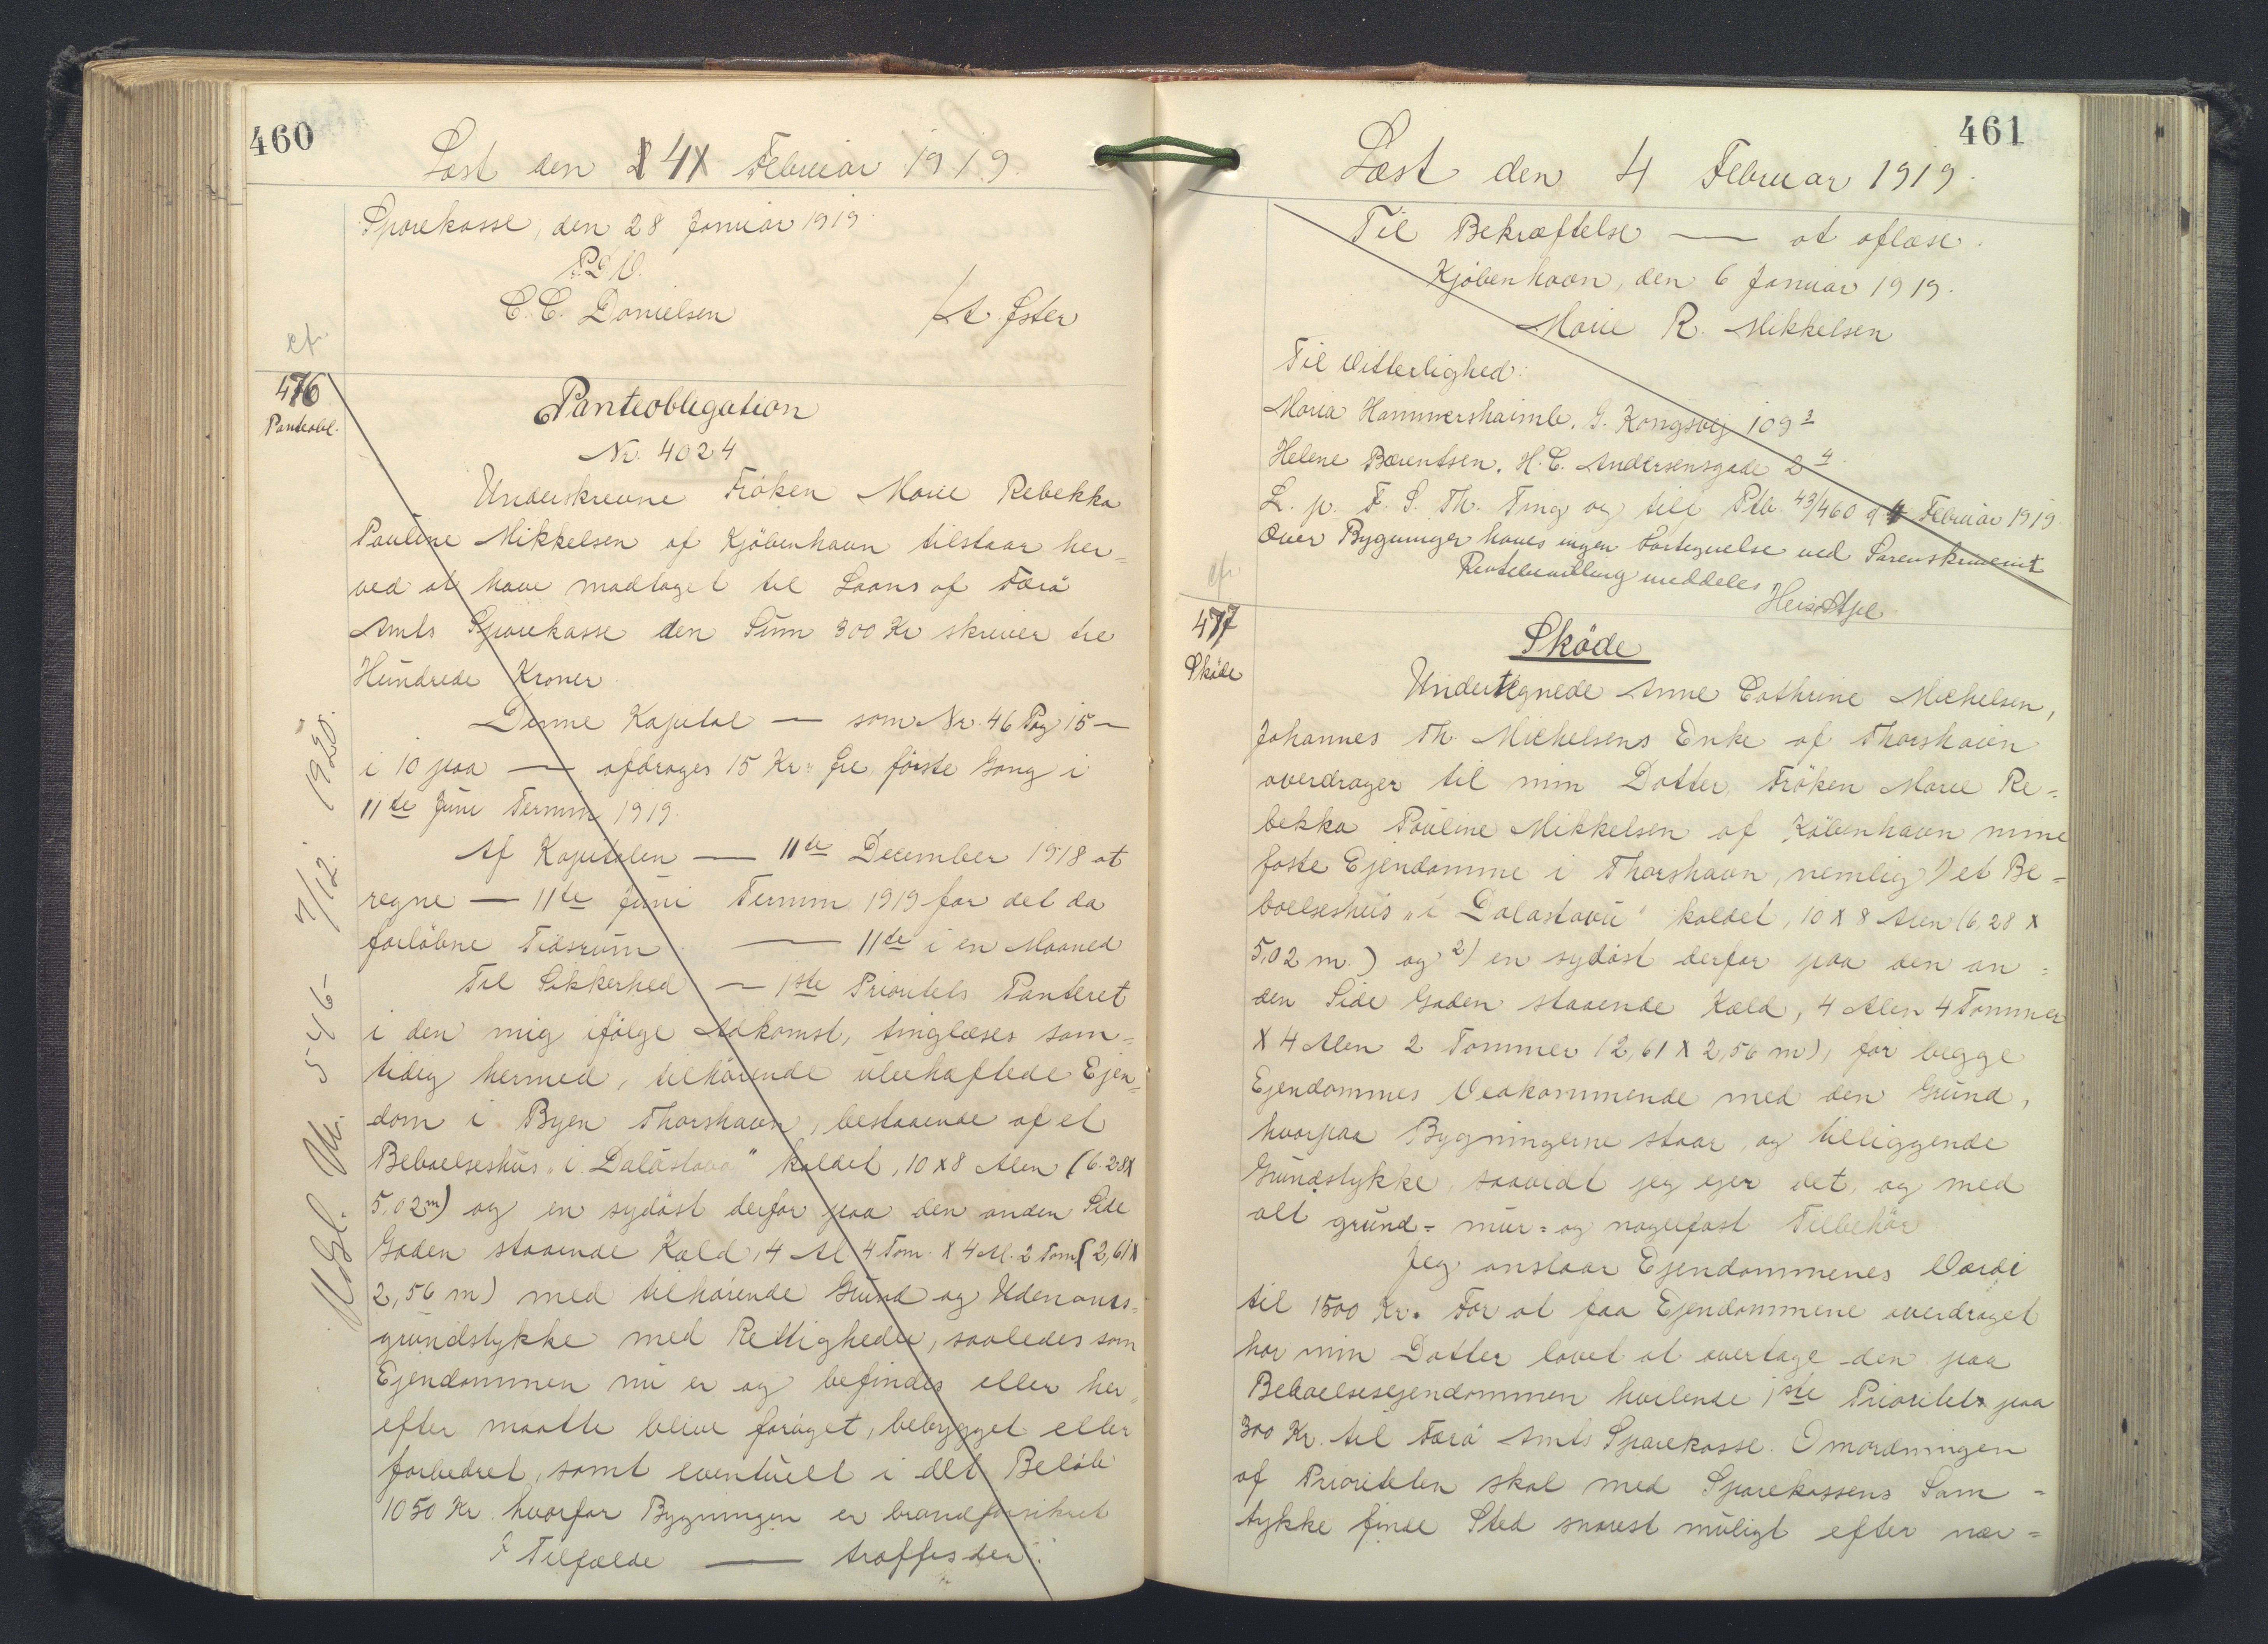 460
Læst den 4 Februar 1919.
Sparekasse, den 28 Januar 1919.
P.D.V.
C. C. Danielsen
/A. Øster
cfr
476
Panteobl.
Panteobligation
Nr. 4024
Underskrevne Fröken Marie Rebekka
Pauline Mikkelsen af Kjöbenhavn tilstaar her=
ved at have modtaget til Laans af Færö
Amts Sparekasse den Sum 300 Kr skriver tre
Hundrede Kroner.
Denne Kapital — som Nr. 46 Pag 15 —
i 10 paa — afdrages 15 Kr " Øre, förste Gang i
11te Juni Termin 1919.
Af Kapitalen — 11te December 1918 at
regne — 11te Juni Termin 1919 for det da
forlöbne Tidsrum — 11te i en Maaned
Til Sikkerhed — 1ste Prioritets Panteret
i den mig ifölge Adkomst, tinglæses sam=
tidig hermed, tilhörende ubehæftede Ejen=
dom i Byen Thorshavn, bestaaende af et
Beboelseshus "i Dalastova" kaldet, 10 x 8 Alen (6.28 x
5,02 m) og en sydöst derfor paa den anden Side
Gaden staaende Kæld, 4 Al. 4 Tom. x 4 Al. 2 Tom. (2,61 x
2,56 m) med tilhörende Grund og Udenoms=
grundstykke med Rettigheder, saaledes som
Ejendommen nu er og befindes eller her=
efter maatte blive foröget, bebygget eller
forbedret, samt eventuelt i det Belöb
1050 Kr. hvorfor Bygningen er brandforsikret
I Tilfælde — træffes der.
Udsl. 546 - 7/12. 1920.
461
Læst den 4 Februar 1919.
Til Bekræftelse — at aflæse.
Kjöbenhavn, den 6 Januar 1919.
Marie R. Mikkelsen
Til Vitterlighed:
Maria Hammershaimb. G. Kongevej 109 3
Helene Bærentsen. H. C. Andersensgade 2 4.
L. p. F. S. Th. Ting og tilf Ptb. 43/460 d 4 Februar 1919.
Over Bygninger haves ingen Fortegnelse ved Sorenskriveriet
Rentebevilling meddeles
cfr
477
Sköde
Sköde
Undertegnede Anne Cathrine Michelsen,
Johannes Th. Michelsens Enke af Thorshavn
overdrager til min Datter, Fröken Marie Re=
bekka Pauline Mikkelsen af Köbenhavn mine
faste Ejendomme i Thorshavn, nemlig 1) et Be=
boelseshus "i Dalastovu" kaldet, 10 x 8 Alen (6,28 x
5,02 m.) og 2) en sydöst derfor paa den an=
den Side Gaden staaende Kæld, 4 Alen 4 Tommer
x 4 Alen 2 Tommer (2,61 x 2,56 m), for begge
Ejendommes Vedkommende med den Grund,
hvorpaa Bygningerne staar, og tilliggende
Grundstykke, saavidt jeg ejer det, og med
alt grund= mur= og nagelfast Tilbehör.
Jeg anslaar Ejendommenes Værdi
til 1500 Kr. For at faa Ejendommene overdraget
har min Datter lovet at overtage den paa
Beboelsesejendommen hvilende 1ste Prioritet paa
300 Kr. til Færö Amts Sparekasse. Omordningen
af Prioriteten skal med Sparekassens Sam=
tykke finde Sted snarest muligt efter nær=